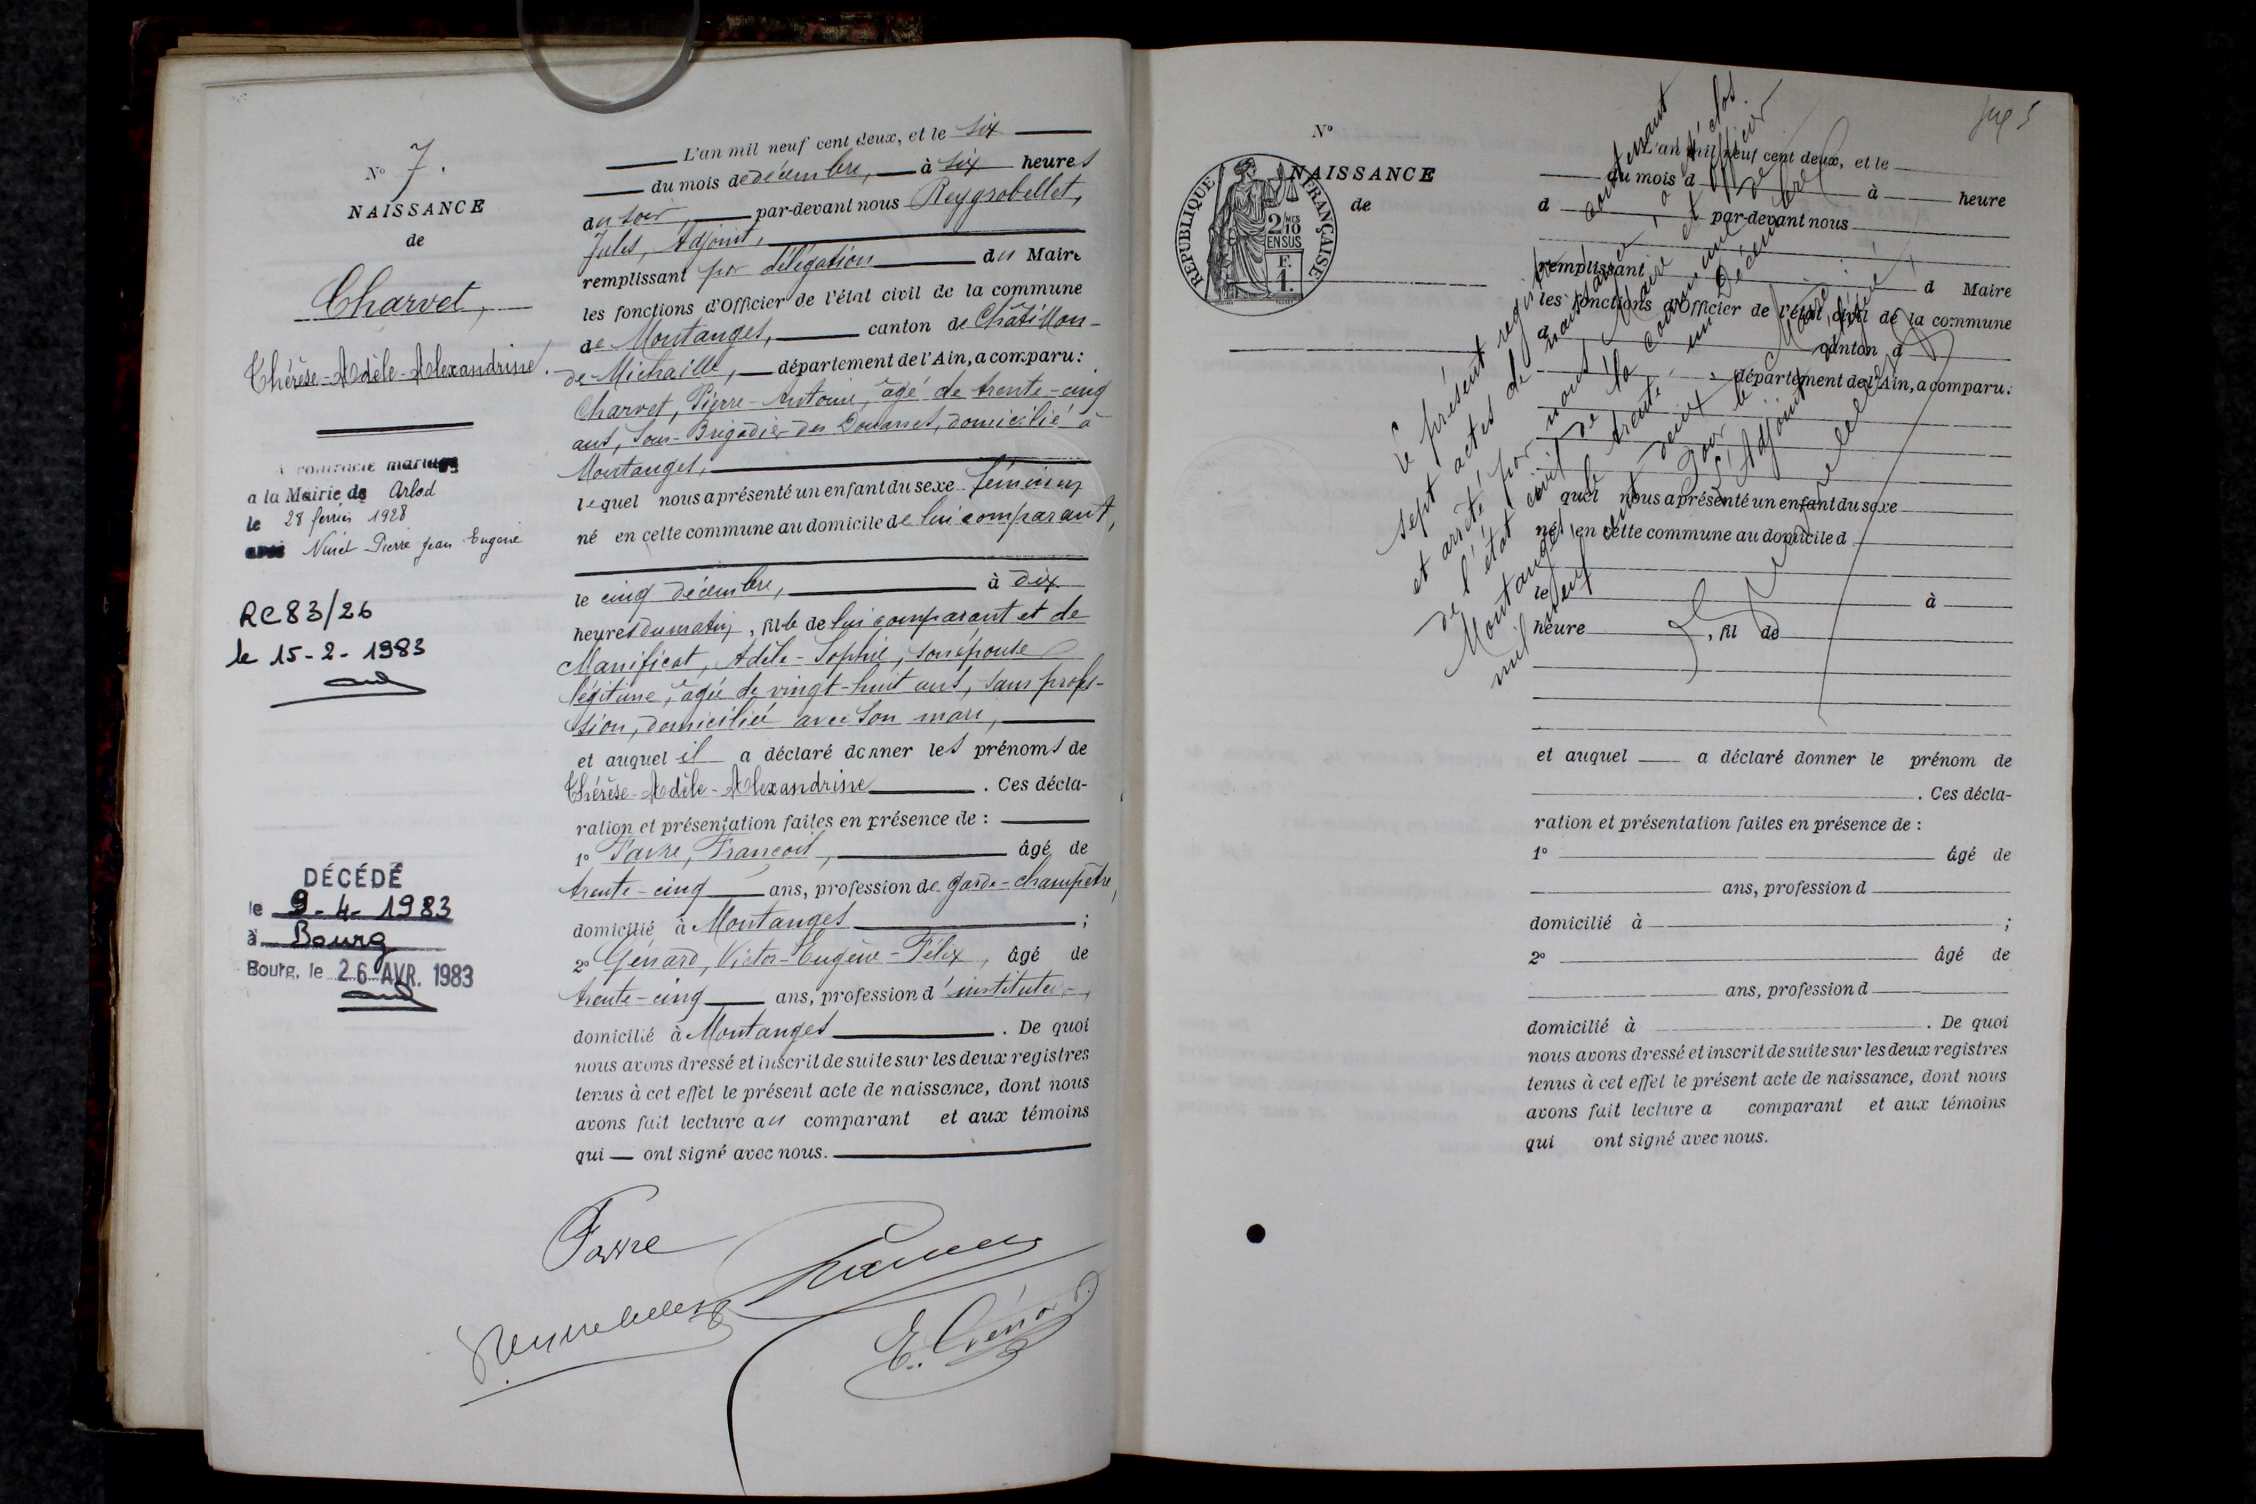 N° 7.
NAISSANCE
de
Charvet,
Thérèse-Adèle-Alexandrine.
A contracté mariage
a la Mairie de Arlod
le 28 février 1928
avec Ninet Pierre Jean Eugène
RC 83/26
le 15-2-1983
DÉCÉDÉ
le 9-4-1983
à Bourg
Bourg, le 26 AVR. 1983
L'an mil neuf cent deux, et le six
du mois de décembre, à six heures
du soir, par-devant nous Reygrobellet,
Jules, Adjoint,
remplissant par délégation du Maire
les fonctions d'Officier de l'état civil de la commune
de Montanges, canton de Châtillon-
de-Michaille, département de l'Ain, a comparu:
Charvet, Pierre-Antoine, âgé de trente-cinq
ans, Sous-Brigadier des Douanes, domicilié à
Montanges,
lequel nous a présenté un enfant du sexe féminin
né en cette commune au domicile de lui comparant,
le cinq décembre, à dix
heures du matin, fille de lui comparant et de
Manificat, Adèle-Sophie, son épouse
légitime, âgée de vingt-huit ans, sans profes-
sion, domiciliée avec son mari,
et auquel il a déclaré donner les prénoms de
Thérèse-Adèle-Alexandrine. Ces décla-
ration et présentation faites en présence de :
1° Favre, François, âgé de
trente-cinq ans, profession de garde-champêtre,
domicilié à Montanges ;
2° Génard, Victor-Eugène-Félix, âgé de
trente-cinq ans, profession d'instituteur,
domicilié à Montanges. De quoi
nous avons dressé et inscrit de suite sur les deux registres
tenus à cet effet le présent acte de naissance, dont nous
avons fait lecture au comparant et aux témoins
qui ont signé avec nous.
Favre
E. Génard
N°
NAISSANCE
de
RÉPUBLIQUE FRANÇAISE
2/10 EN SUS
F.
1.
L'an mil neuf cent deux, et le
du mois d à heure
d par-devant nous
remplissant d Maire
les fonctions d'Officier de l'état civil de la commune
d canton d
département de l'Ain, a comparu:
quel nous a présenté un enfant du sexe
né en cette commune au domicile d
le à
heure , fil de
et auquel a déclaré donner le prénom de
. Ces décla-
ration et présentation faites en présence de :
1° âgé de
ans, profession d
domicilié à ;
2° âgé de
ans, profession d
domicilié à . De quoi
nous avons dressé et inscrit de suite sur les deux registres
tenus à cet effet le présent acte de naissance, dont nous
avons fait lecture a comparant et aux témoins
qui ont signé avec nous.
Le présent registre contenant
sept actes de naissance, a été clos
et arrêté par nous Maire et Officier
de l'état civil de la commune de
Montanges, le trente un Décembre
mil neuf cent deux.
Pour le Maire
L'Adjoint